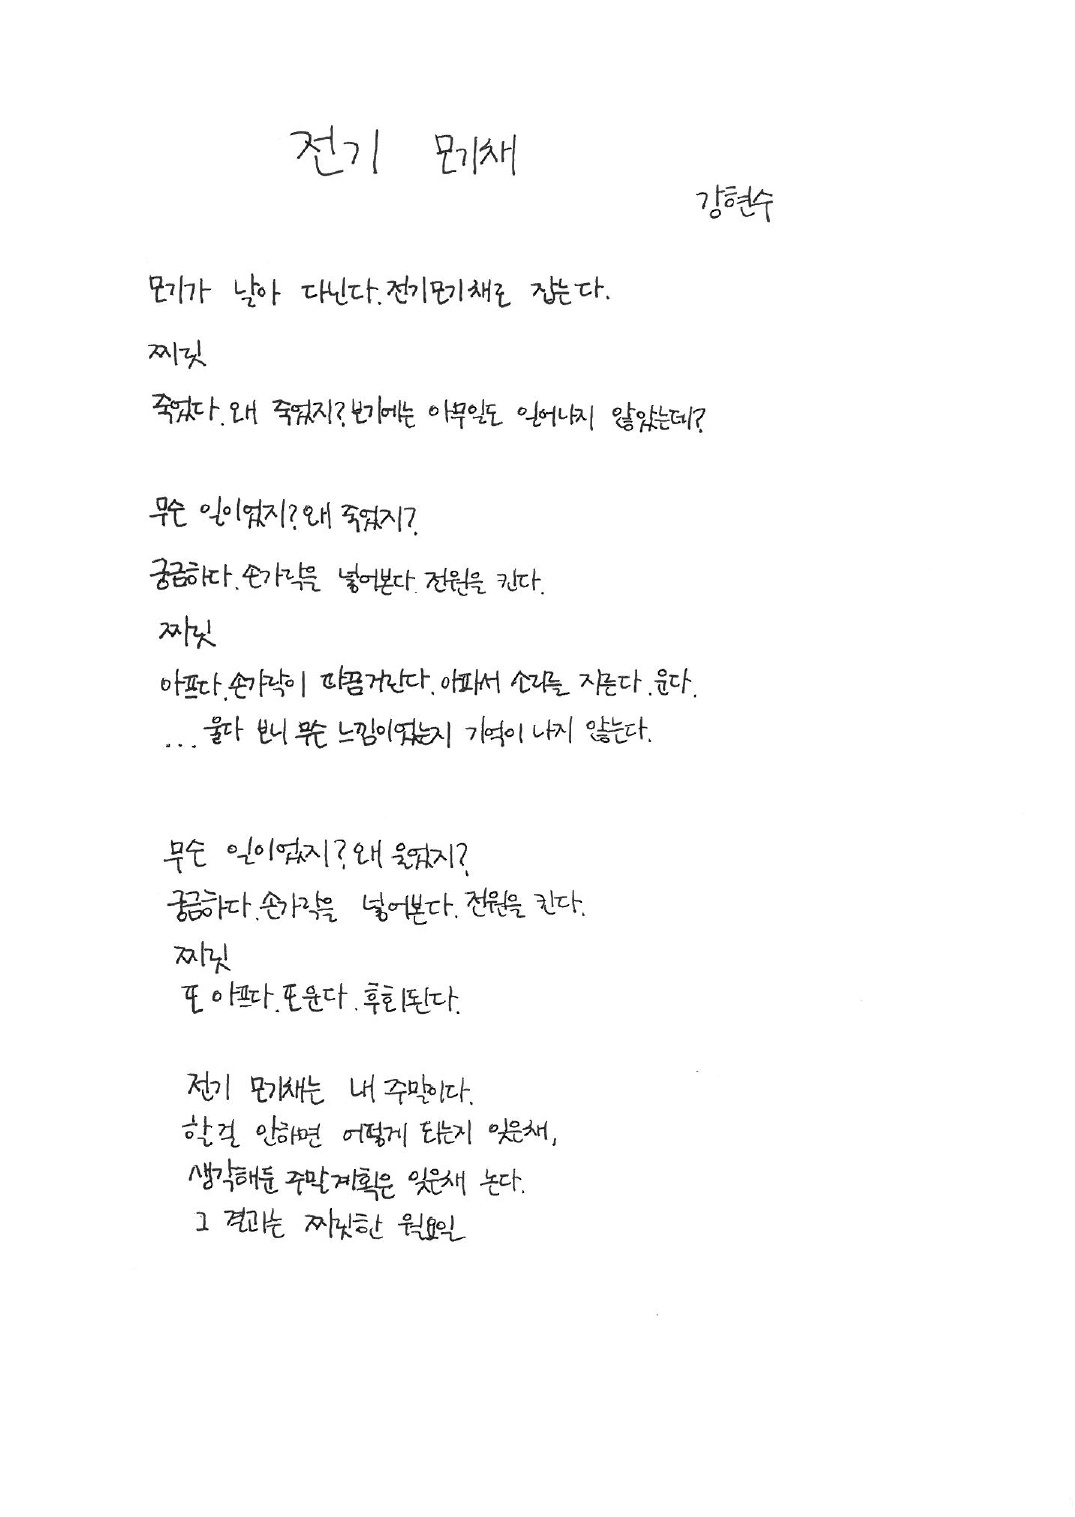 전기 모기채
강현수
모기가 날아 다닌다.전기모기채로 잡는다.
찌릿
죽었다.왜 죽었지?보기에는 아무일도 일어나지 않았는데?
무슨 일이었지?왜 죽었지?
궁금하다.손가락을 넣어본다.전원을 킨다.
찌릿
아프다.손가락이 따끔거린다.아파서 소리를 지른다.운다.
...울다 보니 무슨 느낌이었는지 기억이 나지 않는다.
무슨 일이었지?왜 울었지?
궁금하다.손가락을 넣어본다.전원을 킨다.
찌릿
또 아프다.또운다.후회된다.
전기 모기채는 내 주말이다.
할걸 안하면 어떻게 되는지 잊은채,
생각해둔 주말계획은 잊은채 논다.
그 결과는 찌릿한 월요일